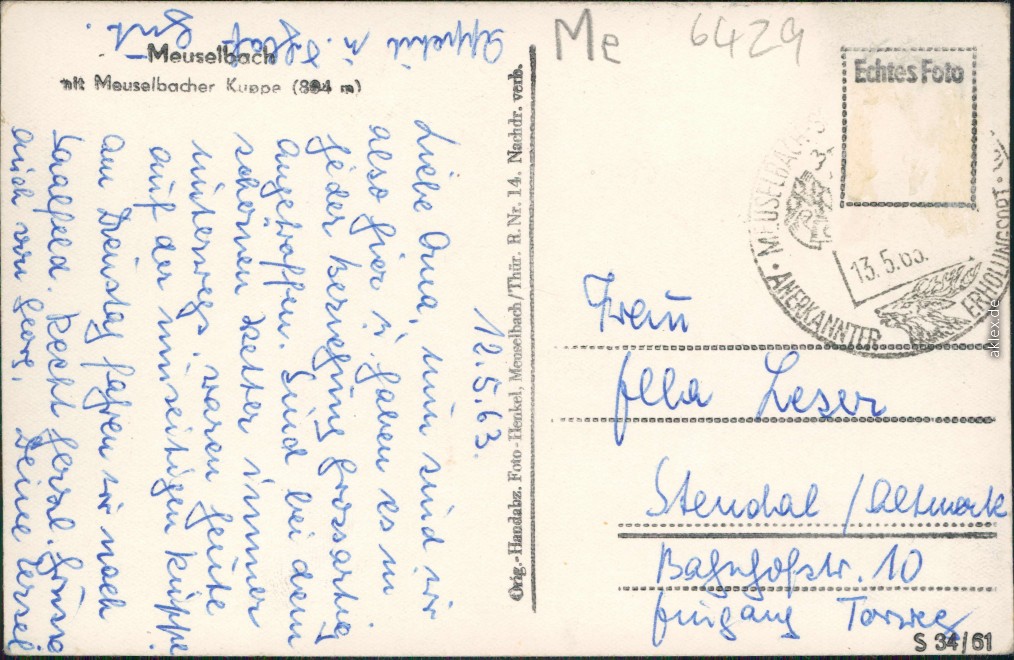 Meuselbach
mit Meuselbacher Kuppe (884 m)
12.5.63.
Liebe Oma, nun sind wir
also hier u. haben es in
jeder Beziehung grossartig
angetroffen. Sind bei dem
schönen Wetter immer
unterwegs, waren heute
auf der umseitigen Kuppe
am Dienstag fahren wir nach
Saalfeld. Recht herzl. Grüsse
auch von Georg. Deine Ursel
Appetit u. Schlaf
gut.
Orig.-Handabz. Foto-Henkel, Meuselbach/Thür. R. Nr. 14. Nachdr. verb.
Me 6429
Echtes Foto
MEUSELBACH
13.5.63.
ANERKANNTER ERHOLUNGSORT
Frau
Ella Leser
Stendal /Altmark
Bahnhofstr. 10
Eingang Torweg
S 34/61
aklex.de